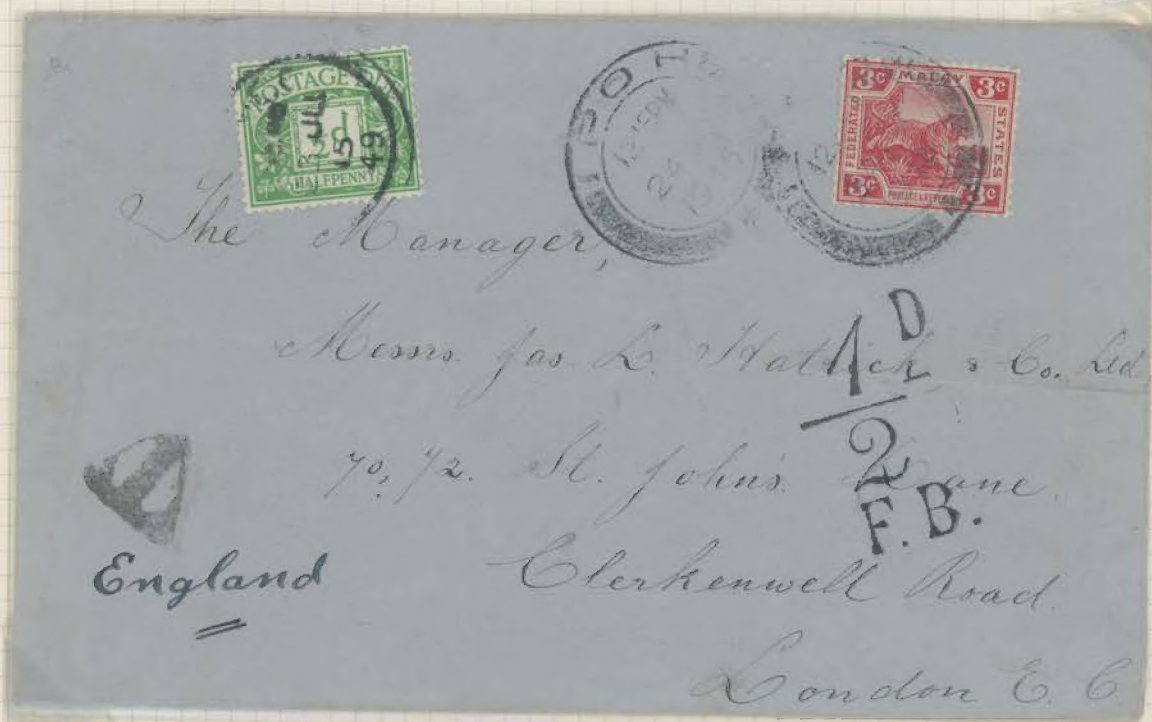 POSTAGE DUE
½d
HALFPENNY
JU
15
49
IPOH
12.15PM
24
19
3c MALAY 3c
FEDERATED
STATES
3c 3c
POSTAGE & REVENUE
12
The Manager,
Messrs. Jas. L. Hattrick, & Co. Ltd
70, 72. St. John's Lane.
Clerkenwell Road.
London E. C.
1D
/
2
F.B.
T
England